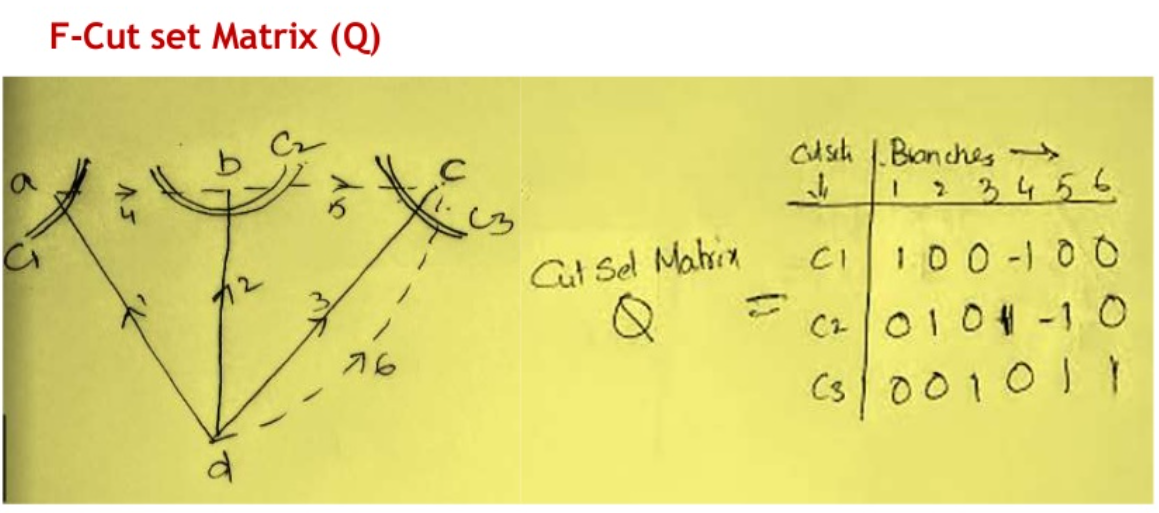 F-Cut set Matrix (Q)
a
4
b
C2
5
c
C3
C1
1
2
3
6
d
Cut Set Matrix
Q
=
Branches →
↓ 1 2 3 4 5 6
C1 1 0 0 -1 0 0
C2 0 1 0 1 -1 0
C3 0 0 1 0 1 1